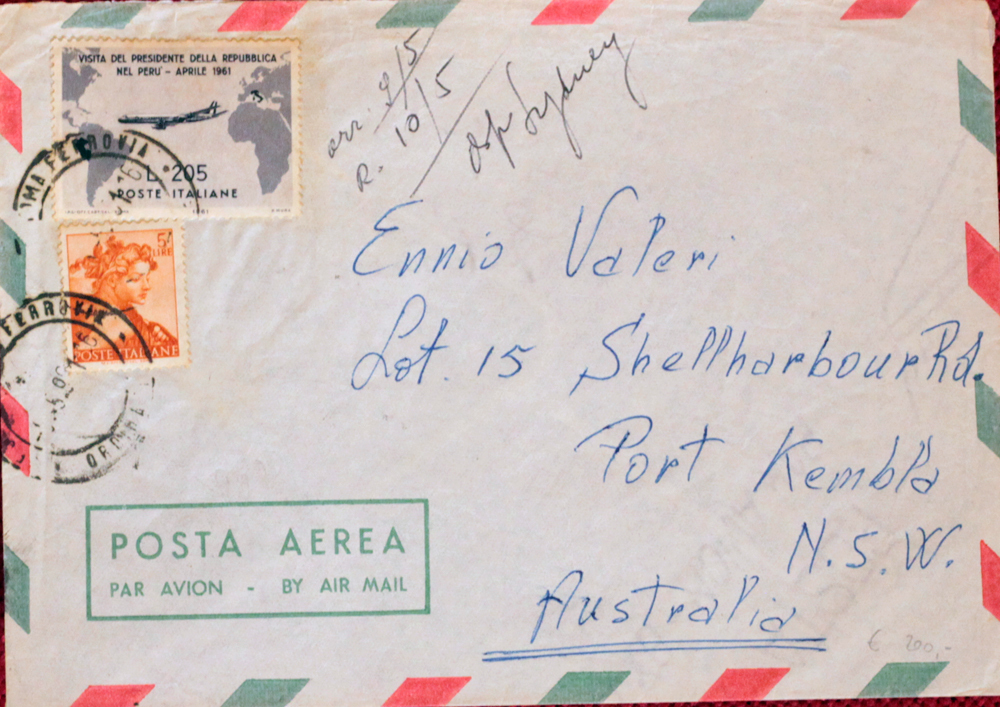 VISITA DEL PRESIDENTE DELLA REPUBBLICA
NEL PERU' - APRILE 1961
L. 205
POSTE ITALIANE
1961
ROMA FERROVIA
5
LIRE
POSTE ITALIANE
FERROVIE
arr. 9/5
R. 10/5
Sydney
Ennio Valeri
Lot. 15 Shellharbour Rd.
Port Kembla
N.S.W.
Australia
POSTA AEREA
PAR AVION - BY AIR MAIL
€ 200,-